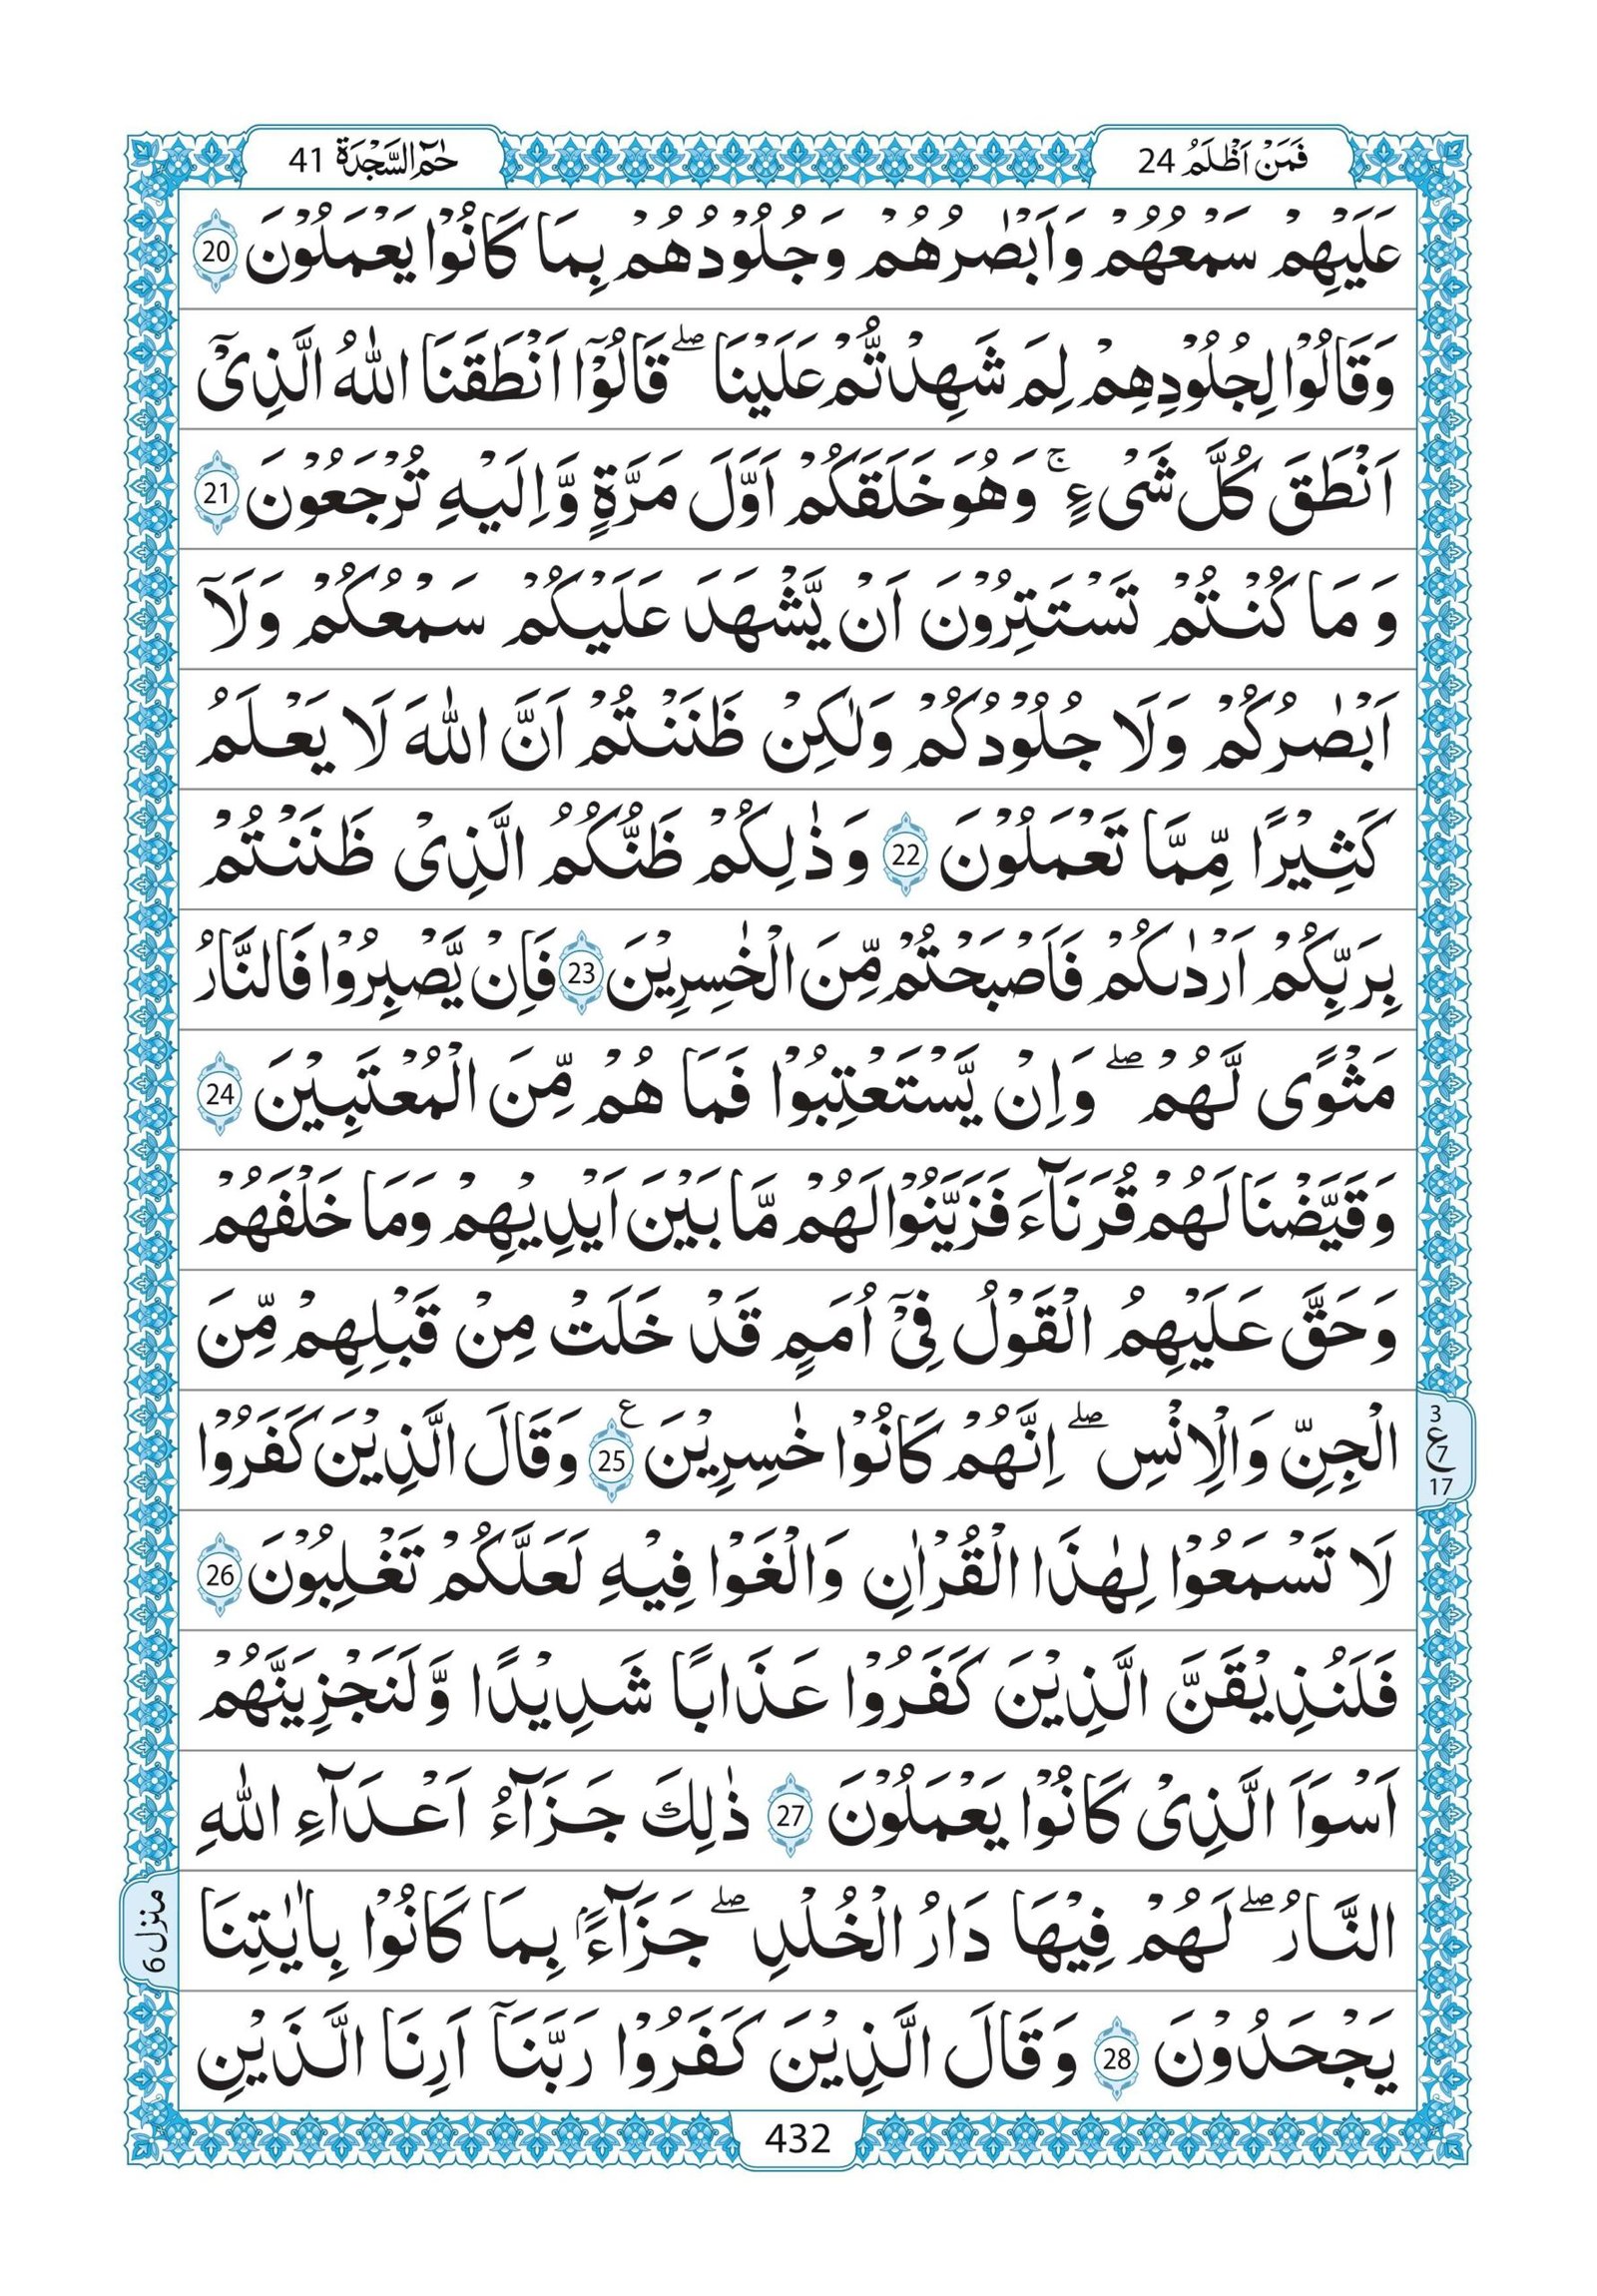 فَمَنْ اَظْلَمُ 24
حٰمٓ السَّجْدَة 41
عَلَيْهِمْ سَمْعُهُمْ وَاَبْصٰرُهُمْ وَجُلُوْدُهُمْ بِمَا كَانُوْا يَعْمَلُوْنَ 20
وَقَالُوْا لِجُلُوْدِهِمْ لِمَ شَهِدْتُّمْ عَلَيْنَا ۖ قَالُوْٓا اَنْطَقَنَا اللّٰهُ الَّذِىْٓ
اَنْطَقَ كُلَّ شَىْءٍ ۚ وَهُوَ خَلَقَكُمْ اَوَّلَ مَرَّةٍ وَّاِلَيْهِ تُرْجَعُوْنَ 21
وَمَا كُنْتُمْ تَسْتَتِرُوْنَ اَنْ يَّشْهَدَ عَلَيْكُمْ سَمْعُكُمْ وَلَآ
اَبْصٰرُكُمْ وَلَا جُلُوْدُكُمْ وَلٰكِنْ ظَنَنْتُمْ اَنَّ اللّٰهَ لَا يَعْلَمُ
كَثِيْرًا مِّمَّا تَعْمَلُوْنَ 22 وَذٰلِكُمْ ظَنُّكُمُ الَّذِىْ ظَنَنْتُمْ
بِرَبِّكُمْ اَرْدٰىكُمْ فَاَصْبَحْتُمْ مِّنَ الْخٰسِرِيْنَ 23 فَاِنْ يَّصْبِرُوْا فَالنَّارُ
مَثْوًى لَّهُمْ ۖ وَاِنْ يَّسْتَعْتِبُوْا فَمَا هُمْ مِّنَ الْمُعْتَبِيْنَ 24
وَقَيَّضْنَا لَهُمْ قُرَنَآءَ فَزَيَّنُوْا لَهُمْ مَّا بَيْنَ اَيْدِيْهِمْ وَمَا خَلْفَهُمْ
وَحَقَّ عَلَيْهِمُ الْقَوْلُ فِىْٓ اُمَمٍ قَدْ خَلَتْ مِنْ قَبْلِهِمْ مِّنَ
الْجِنِّ وَالْاِنْسِ ۖ اِنَّهُمْ كَانُوْا خٰسِرِيْنَ ع 25 وَقَالَ الَّذِيْنَ كَفَرُوْا
3
ع 7
17
لَا تَسْمَعُوْا لِهٰذَا الْقُرْاٰنِ وَالْغَوْا فِيْهِ لَعَلَّكُمْ تَغْلِبُوْنَ 26
فَلَنُذِيْقَنَّ الَّذِيْنَ كَفَرُوْا عَذَابًا شَدِيْدًا وَّلَنَجْزِيَنَّهُمْ
اَسْوَاَ الَّذِىْ كَانُوْا يَعْمَلُوْنَ 27 ذٰلِكَ جَزَآءُ اَعْدَآءِ اللّٰهِ
النَّارُ ۖ لَهُمْ فِيْهَا دَارُ الْخُلْدِ ۖ جَزَآءًۢ بِمَا كَانُوْا بِاٰيٰتِنَا
منزل 6
يَجْحَدُوْنَ 28 وَقَالَ الَّذِيْنَ كَفَرُوْا رَبَّنَآ اَرِنَا الَّذَيْنِ
432